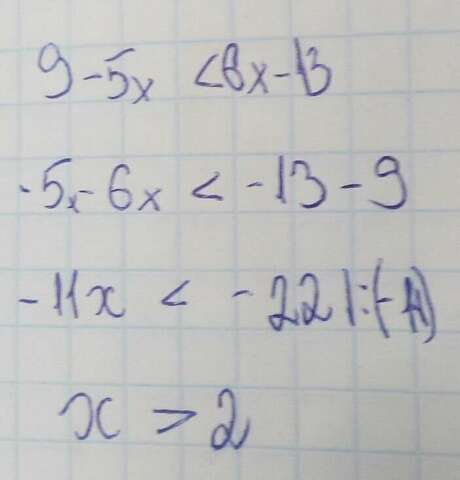 9-5x <6x-13
-5x-6x < -13-9
-11x < -22 |:(-11)
x > 2